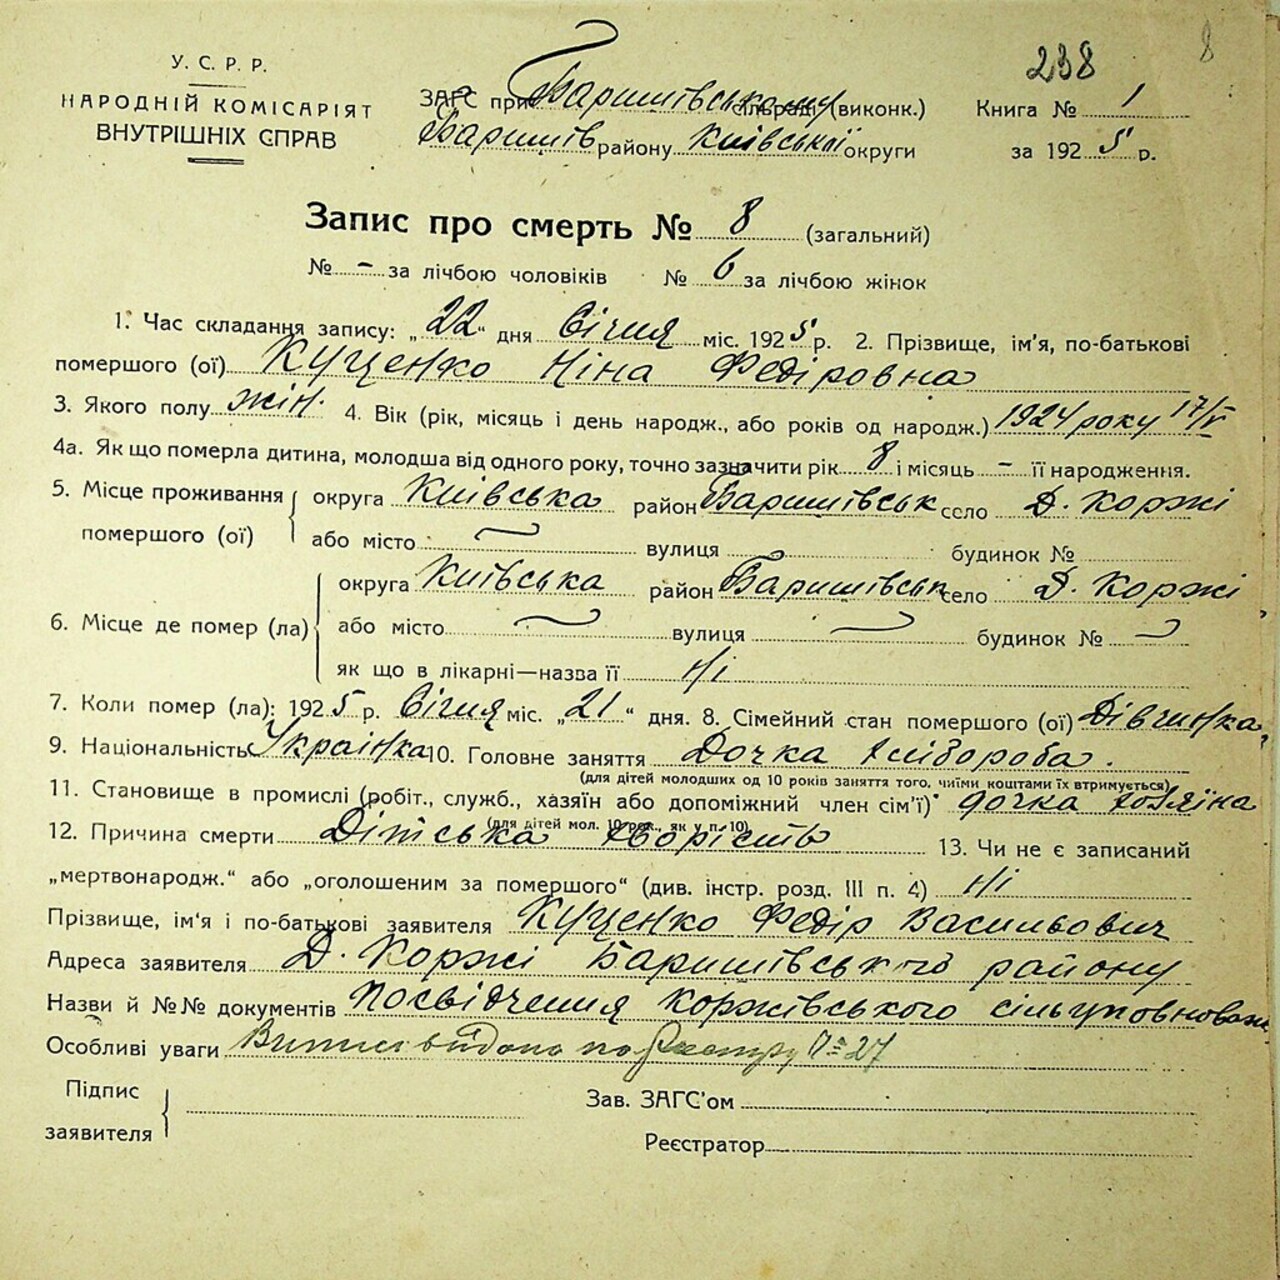 238 8
У. С. Р. Р.
НАРОДНІЙ КОМІСАРІЯТ
ВНУТРІШНІХ СПРАВ
ЗАГС при Баришівському сільраді (виконк.)
Баришів району Київської округи
Книга № 1
за 1925 р.
Запис про смерть № 8 (загальний)
№ – за лічбою чоловіків № 6 за лічбою жінок
1. Час складання запису: „22“ дня Січня міс. 1925 р. 2. Прізвище, ім’я, по-батькові
помершого (ої) Куценко Ніна Федіровна
3. Якого полу жін. 4. Вік (рік, місяць і день народж., або років од народж.) 1924 року 17/V
4а. Як що померла дитина, молодша від одного року, точно зазначити рік 8 і місяць – її народження.
5. Місце проживання помершого (ої) округа Київська район Баришівськ село Д. Коржі
або місто вулиця будинок №
6. Місце де помер (ла) округа Київська район Баришівськ село Д. Коржі
або місто вулиця будинок №
як що в лікарні—назва її Ні
7. Коли помер (ла): 1925 р. Січня міс. „21“ дня. 8. Сімейний стан помершого (ої) Дівчинка
9. Національність Українка 10. Головне заняття Дочка хлібороба.
(для дітей молодших од 10 років заняття того, чиїми коштами їх втримується)
11. Становище в промислі (робіт., служб., хазяїн або допоміжний член сім’ї) дочка хозяїна
(для дітей мол. 10 рок., як у п. 10)
12. Причина смерти Дітська хворість 13. Чи не є записаний
„мертвонародж.“ або „оголошеним за помершого“ (див. інстр. розд. III п. 4) Ні
Прізвище, ім‘я і по-батькові заявителя Куценко Федір Васильович
Адреса заявителя Д. Коржі Баришівського району
Назви й №№ документів посвідчення Коржівського сільуповноваж
Особливі уваги видано по 27
Підпис заявителя
Зав. ЗАГС’ом
Реєстратор